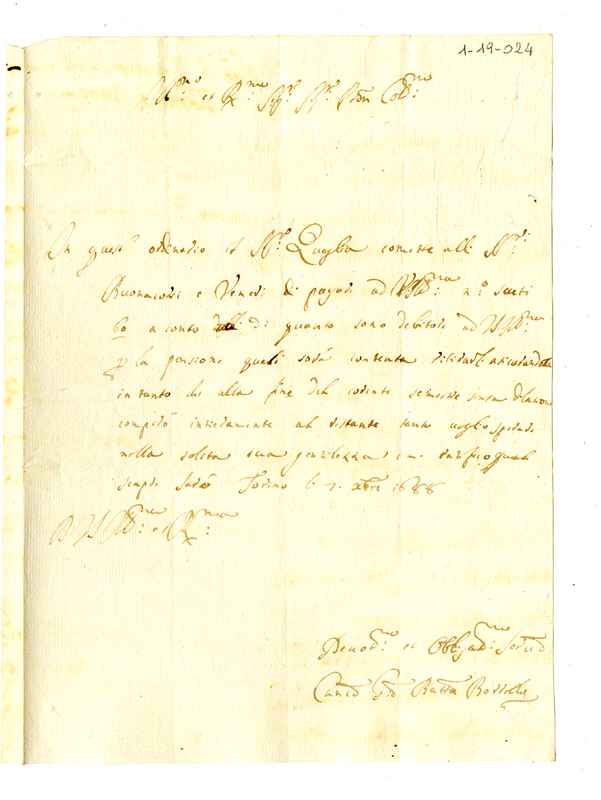 1-19-024
Ill.mo et R.mo Sig.r Sig.r P.ron Col.mo
In quest' ordinario il Sig.r Quaglia comette alli Sig.ri
Buonvisi e Venesi di pagare ad V.S.Ill.ma n.o scuti
60 a conto di quanto sono debitore ad V.S.Ill.ma
p la pensione quali sarà contenta ritirarli
in tanto che alla fine del corente semestre senza
compirò intieramente al restante tanto voglio sperare
nella solita sua gentilezza e mi
sempre sarò Torino li 7. xbre 1688
D. V.S. Ill.ma et R.ma
Devot.mo et Obligat.mo Servid
Gio Batta